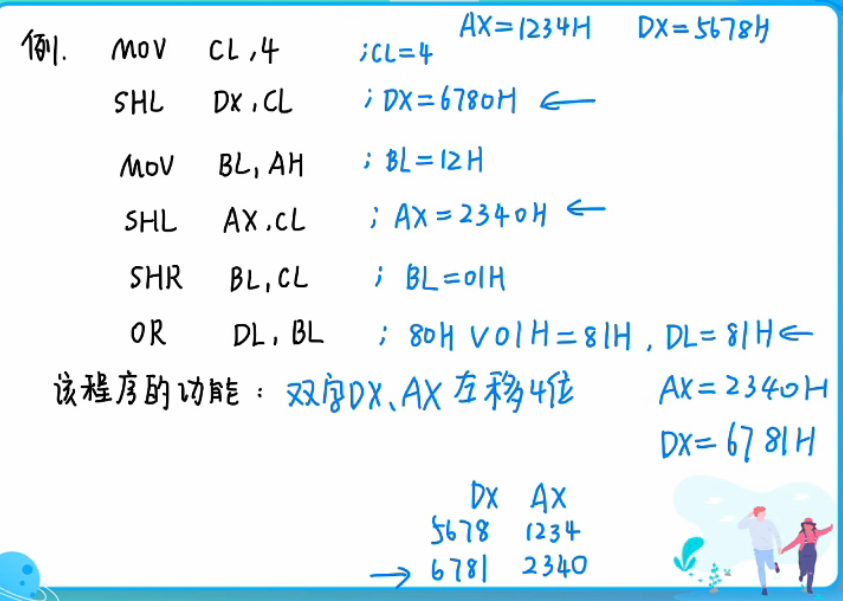 AX=1234H DX=5678H
例. MOV CL,4 ;CL=4
SHL DX,CL ;DX=6780H ←
MOV BL,AH ;BL=12H
SHL AX,CL ;AX=2340H ←
SHR BL,CL ;BL=01H
OR DL,BL ;80H V 01H=81H,DL=81H←
该程序的功能:双字DX、AX左移4位 AX=2340H
DX=6781H
DX AX
5678 1234
→ 6781 2340